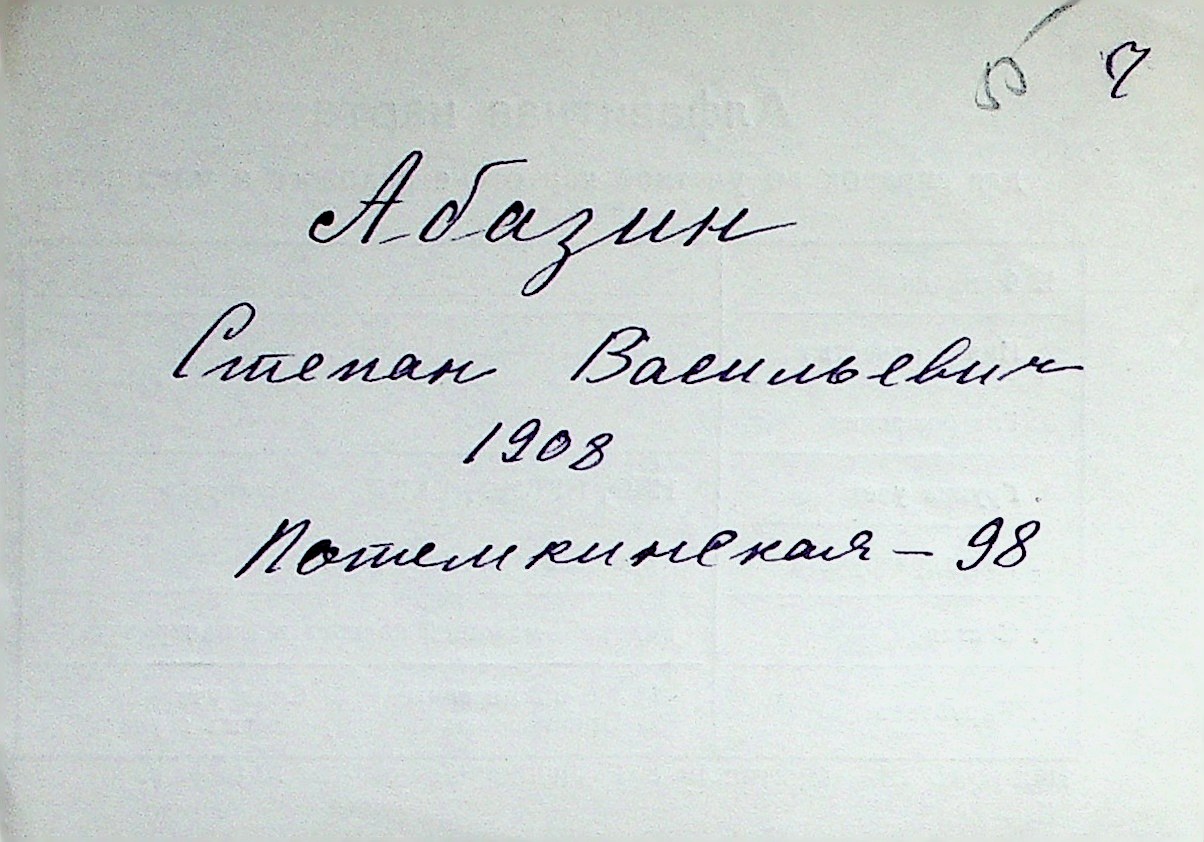 7
Абазин
Степан Васильевич
1908
Потемкинская – 98